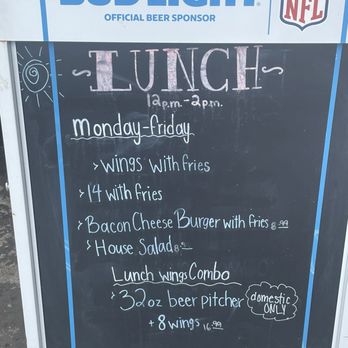 BUD LIGHT
OFFICIAL BEER SPONSOR
NFL
~LUNCH~
12p.m.-2p.m.
Monday-friday
> wings with fries
> 14 with fries
> Bacon Cheese Burger with fries 8.99
> House Salad
Lunch wings Combo
> 32oz beer pitcher
domestic
ONLY
+ 8 wings 16.99